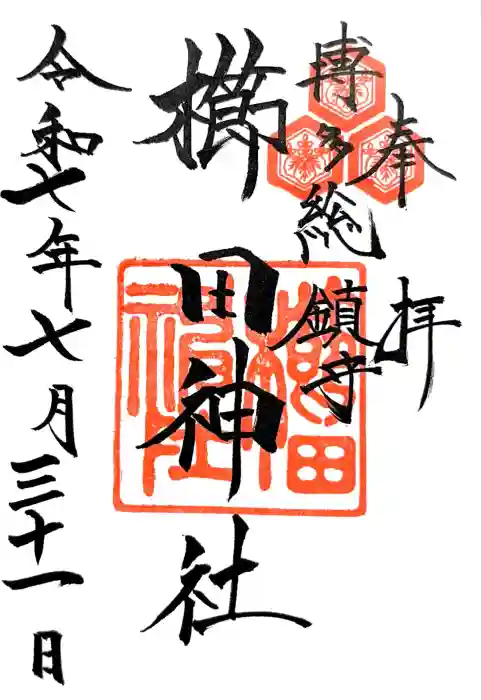 奉拝
博多総鎮守
櫛田神社
令和七年七月三十一日
櫛田
神社